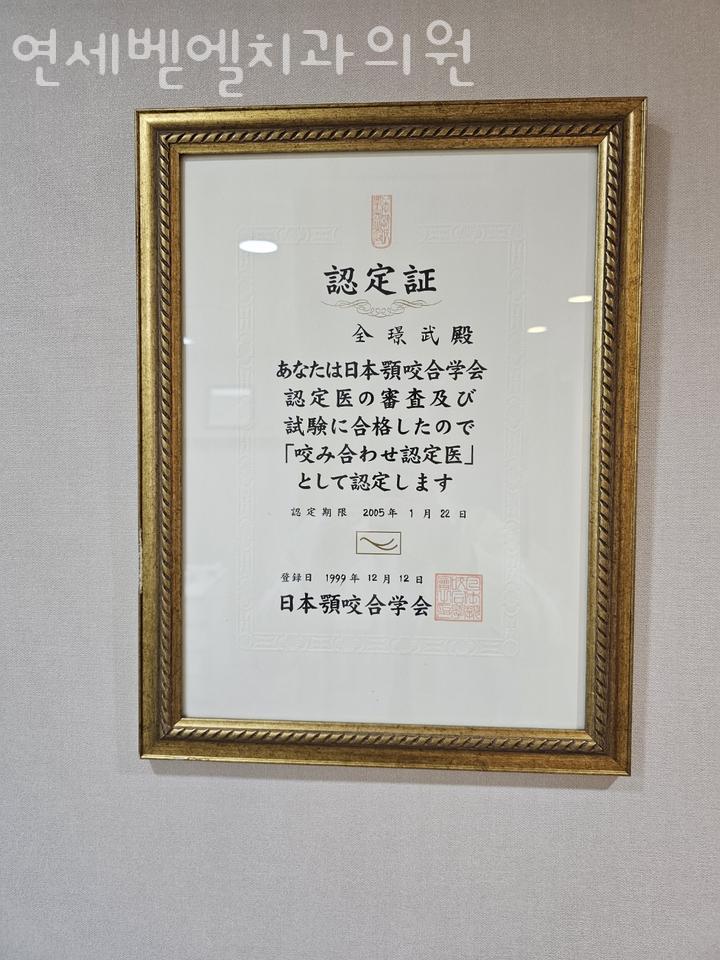 연세벧엘치과의원
認定証
全璟武殿
あなたは日本顎咬合学会
認定医の審査及び
試験に合格したので
「咬み合わせ認定医」
として認定します
認定期限 2005年 1月 22日
登録日 1999年 12月 12日
日本顎咬合学会